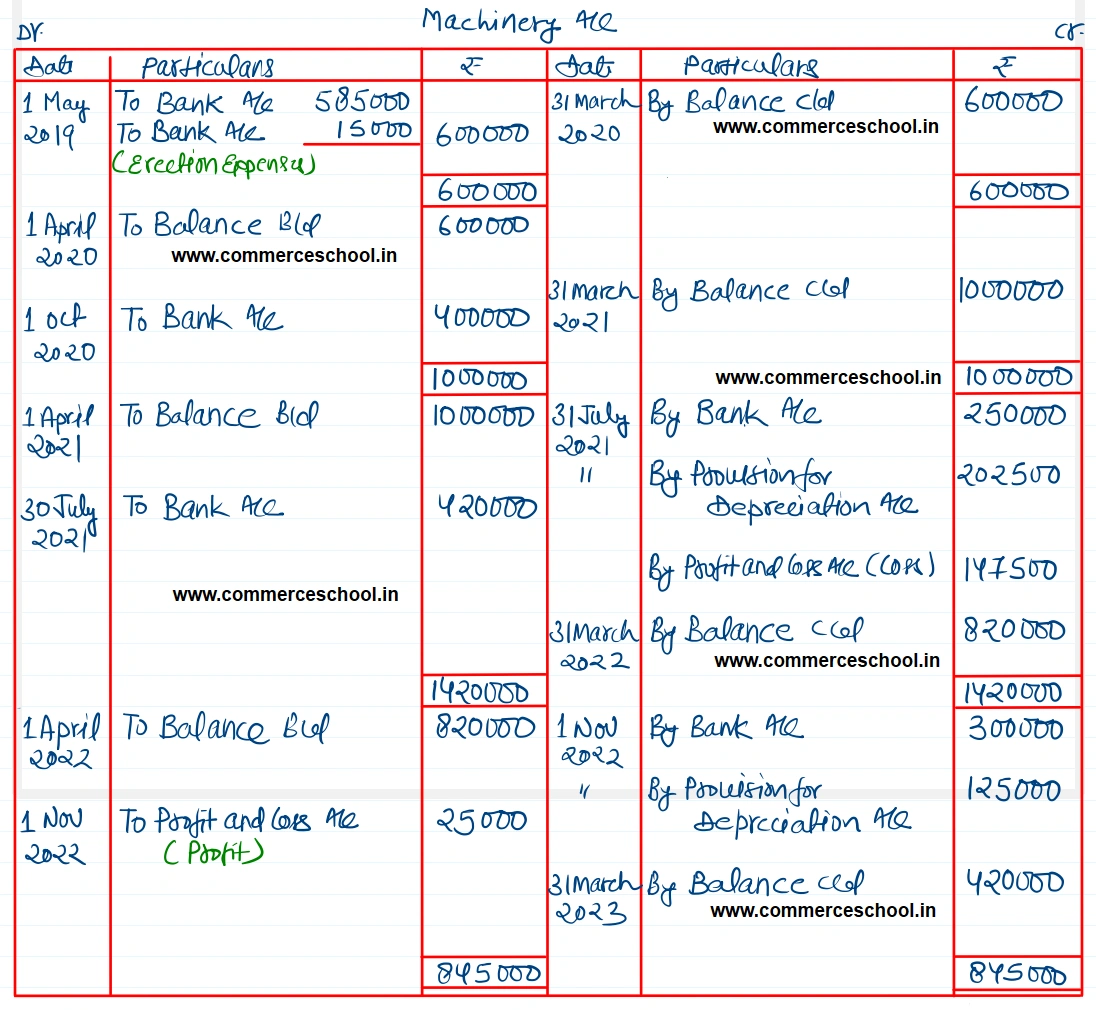 Machinery A/c
Dr. Cr.
Date Particulars ₹ Date Particulars ₹
1 May To Bank A/c 585000 31 March By Balance c/d 600000
2019 To Bank A/c 15000 600000 2020 www.commerceschool.in
(Erection Expenses)
600000 600000
1 April To Balance B/d 600000
2020 www.commerceschool.in
31 March By Balance c/d 1000000
1 Oct To Bank A/c 400000 2021
2020
1000000 www.commerceschool.in 1000000
1 April To Balance B/d 1000000 31 July By Bank A/c 250000
2021 2021
" By Provision for 202500
30 July To Bank A/c 420000 Depreciation A/c
2021
By Profit and Loss A/c (Loss) 147500
www.commerceschool.in
31 March By Balance c/d 820000
2022 www.commerceschool.in
1420000 1420000
1 April To Balance B/d 820000 1 Nov By Bank A/c 300000
2022 2022
" By Provision for 125000
1 Nov To Profit and Loss A/c 25000 Depreciation A/c
2022 (Profit)
31 March By Balance c/d 420000
2023 www.commerceschool.in
845000 845000